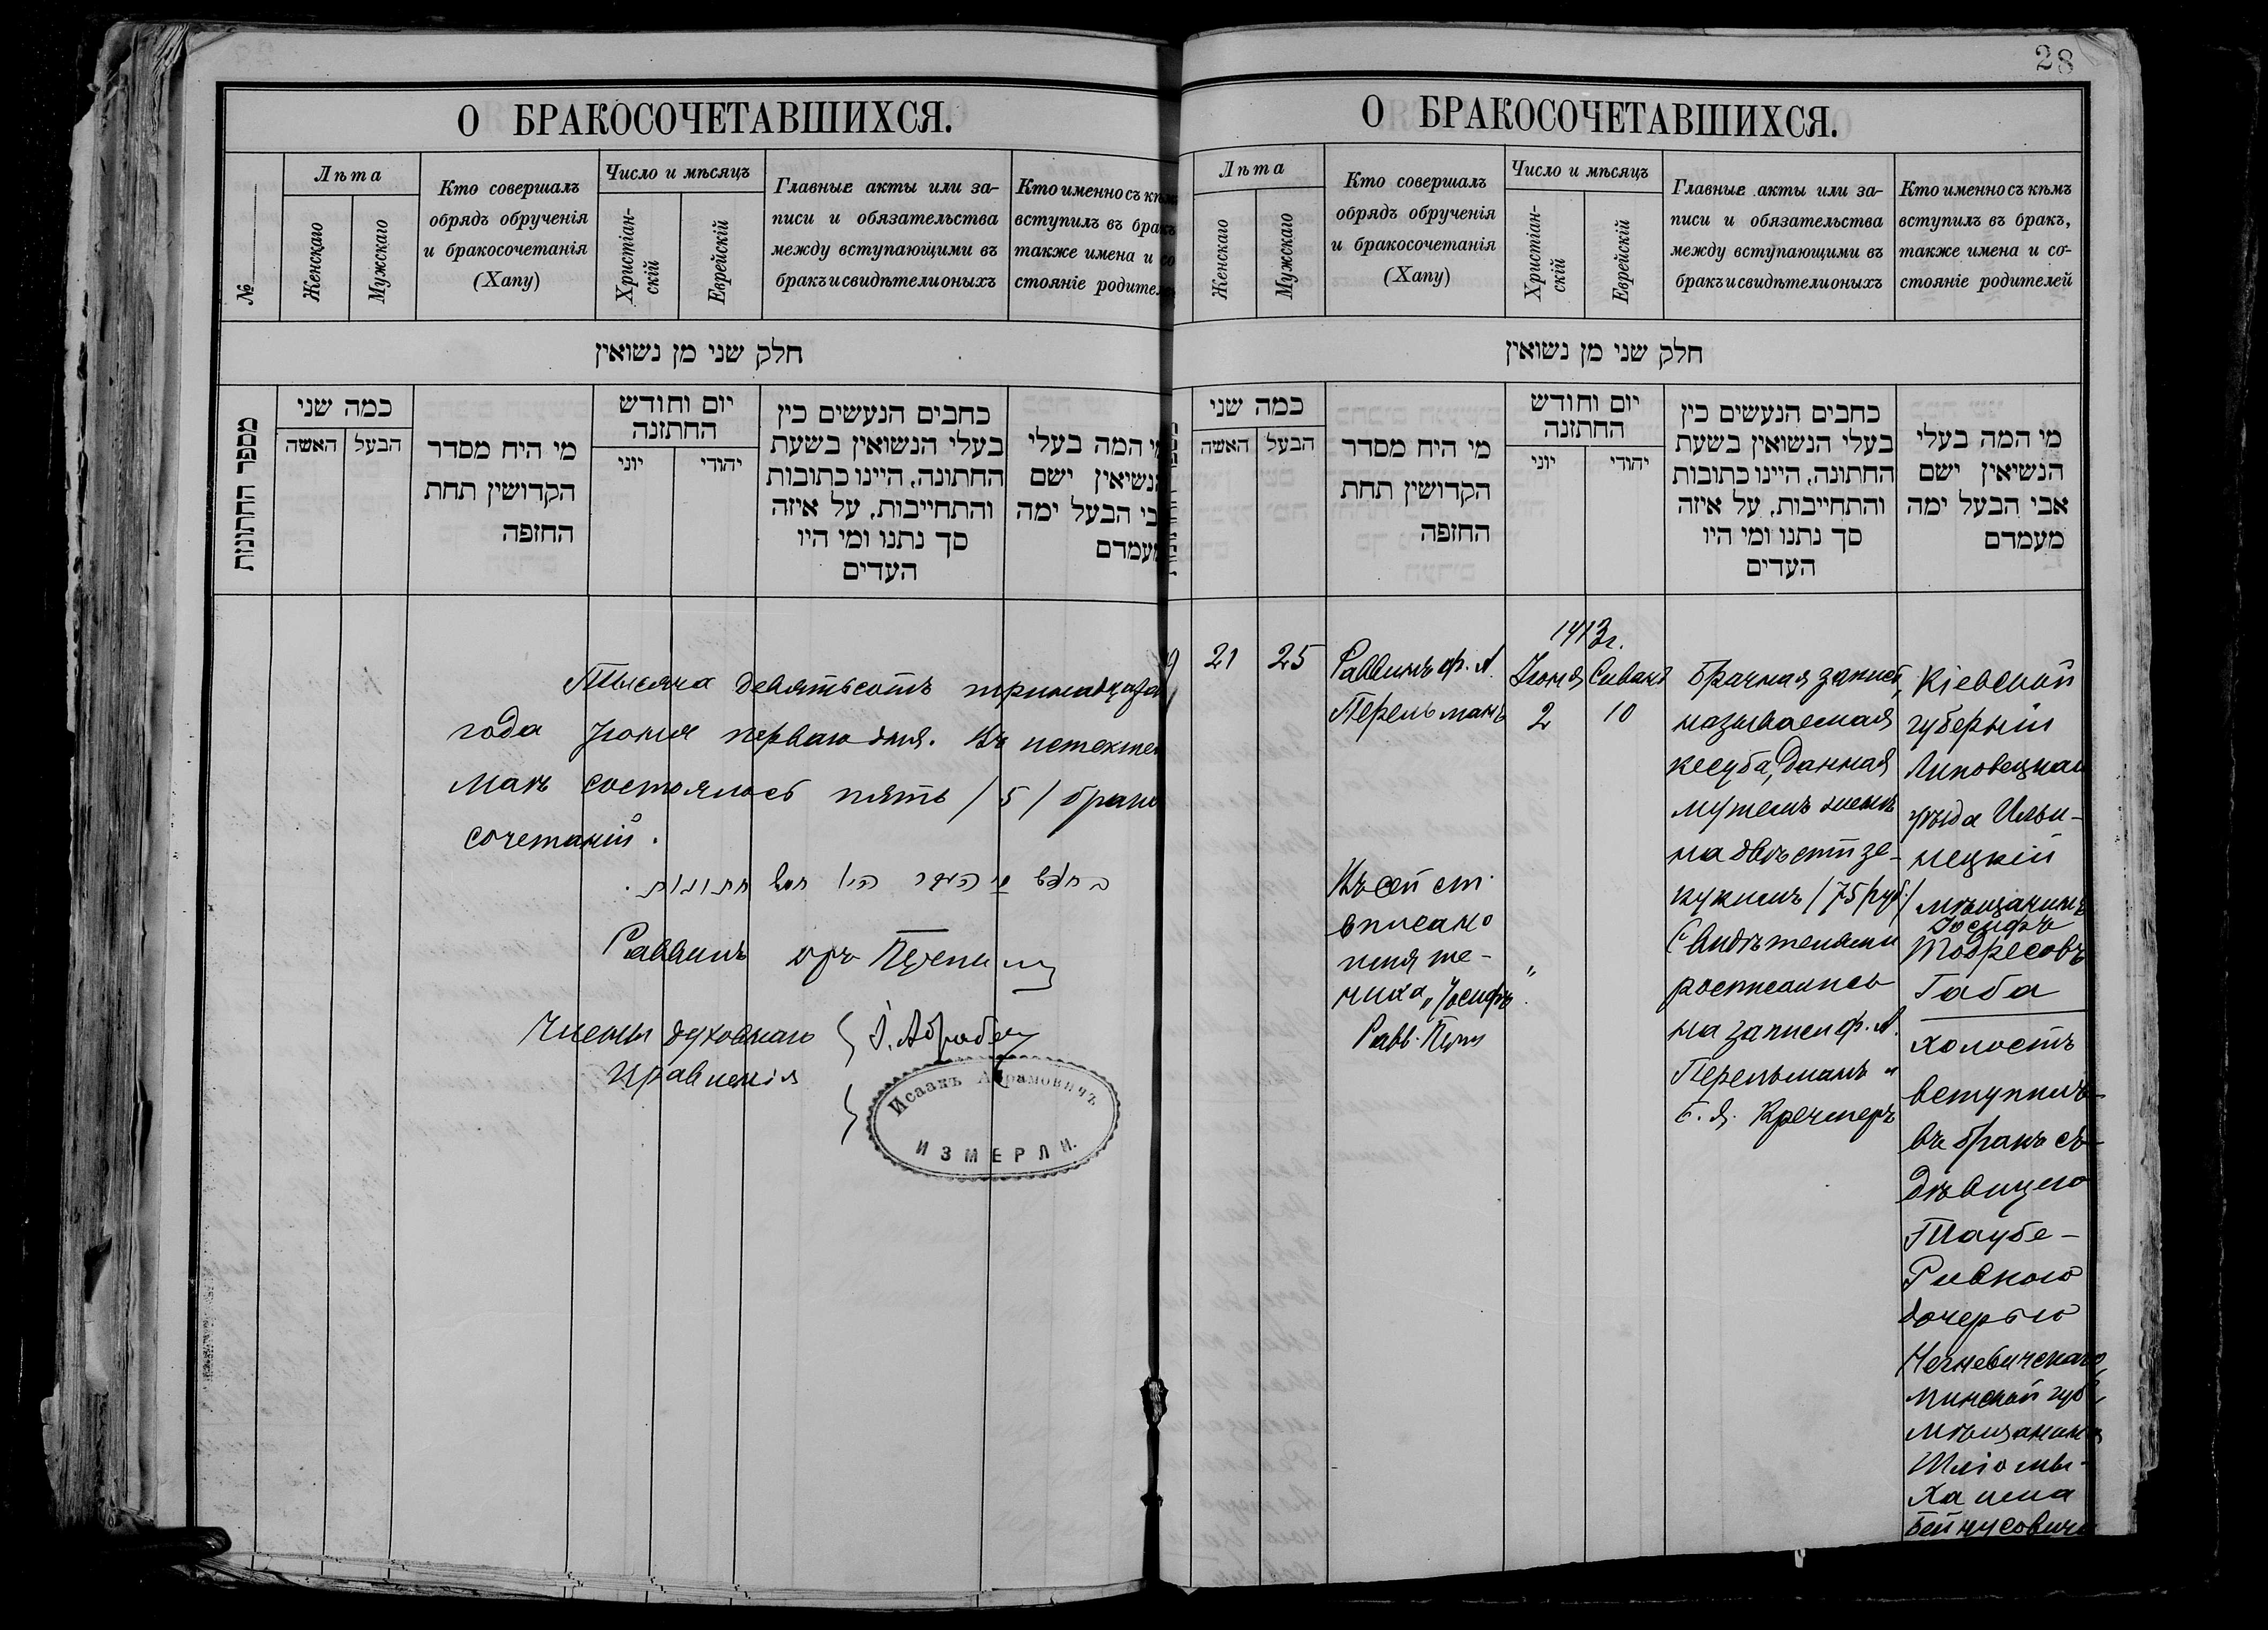 28
О БРАКОСОЧЕТАВШИХСЯ.
№
Лѣта
Женскаго
Мужскаго
Кто совершалъ
обрядъ обрученія
и бракосочетанія
(Хапу)
Число и мѣсяцъ
Христіан-
скій
Еврейскій
Главные акты или за-
писи и обязательства
между вступающими въ
бракъ и свидѣтели оныхъ
Кто именно съ кѣмъ
вступилъ въ бракъ
также имена и со
стояніе родителей
חלק שני מן נשואין
מספר החתונות
כמה שני
האשה
הבעל
מי היח מסדר
הקדושין תחת
החזפה
יום וחודש
החתזנה
יוני
יהודי
כחבים הנעשים כין
בעלי הנשואין בשעת
החתונה, היינו כתובות
והתחייבות, על איזה
סך נתנו ומי היו
העדים
מי המה בעלי
הנשיאין ישם
אבי הבעל ימה
מעמדם
Тысяча девятьсотъ тринадцата
года Іюня перваго дня. Въ истекшем
Маѣ состоялось пять / 5 / брако
сочетаній.
חתונות.
Раввинъ
Члены духовнаго
Правленія
Исаакъ Абрамовичъ
ИЗМЕРЛИ.
О БРАКОСОЧЕТАВШИХСЯ.
Лѣта
Женскаго
Мужскаго
Кто совершалъ
обрядъ обрученія
и бракосочетанія
(Хапу)
Число и мѣсяцъ
Христіан-
скій
Еврейскій
Главные акты или за-
писи и обязательства
между вступающими въ
бракъ и свидѣтели оныхъ
Кто именно съ кѣмъ
вступилъ въ бракъ,
также имена и со-
стояніе родителей
חלק שני מן נשואין
כמה שני
האשה
הבעל
מי היח מסדר
הקדושין תחת
החזפה
יום וחודש
החתזנה
יוני
יהודי
כחבים הנעשים כין
בעלי הנשואין בשעת
החתונה, היינו כתובות
והתחייבות, על איזה
סך נתנו ומי היו
העדים
מי המה בעלי
הנשיאין ישם
אבי הבעל ימה
מעמדם
21
25
Раввинъ ф. А.
Перельманъ
Въ сей ст.
вписано
имя же-
ниха „Іосифъ"
Равв.
1913г.
Іюня
2
Сивана
10
Брачная запись,
называемая
кесуба, данная
мужемъ женѣ
на двѣсти зе-
кукимъ / 75 руб. /
Свидѣтелями
росписались
на записи ф. А.
Перельманъ и
Б. Я. Кречмеръ
Кіевской
губерніи
Липовецкаго
уѣзда Ильи-
нецкій
мѣщанинъ
Іосифъ
Тодресовъ
Габа
холостъ
вступилъ
въ бракъ съ
дѣвицею
Таубе-
Ривкою
дочерью
Минской губ.
мѣщанина
Шліомы-
Хаима
Бейнусовича